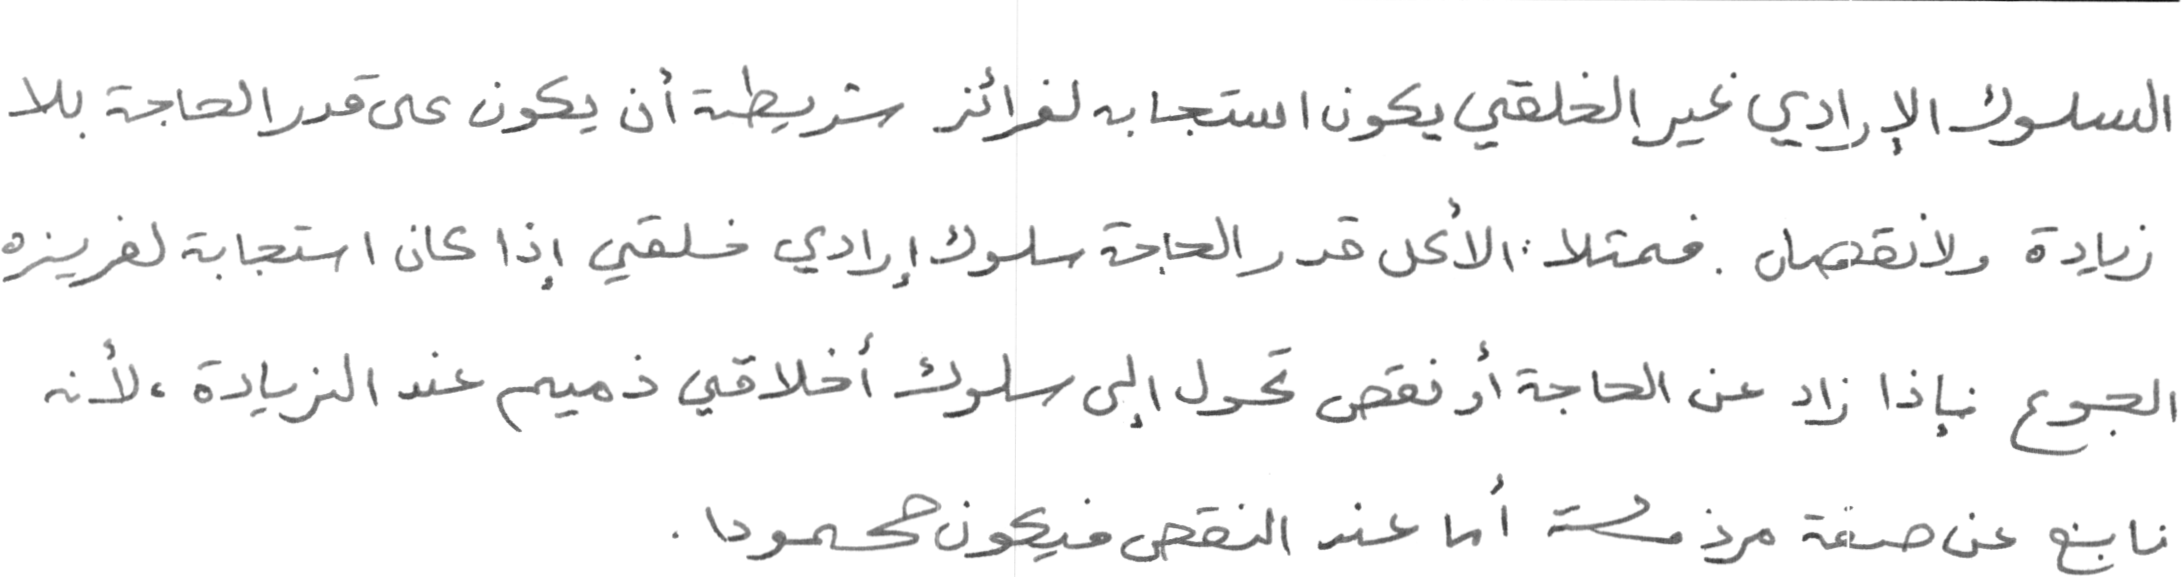 السلوك الإرادي غير الخلقي يكون استجابه لغرائز شريطة أن يكون على قدر الحاجة بلا
زيادة ولا نقصان . فمثلا : الأكل قدر الحاجة سلوك إرادي خلقي إذا كان استجابة لغريزه
الجوع فإذا زاد عن الحاجة أو نقص تحول إلى سلوك أخلاقي ذميم عند الزيادة ، لأنه
نابع عن صفة أما عند النقص فيكون محمودا .